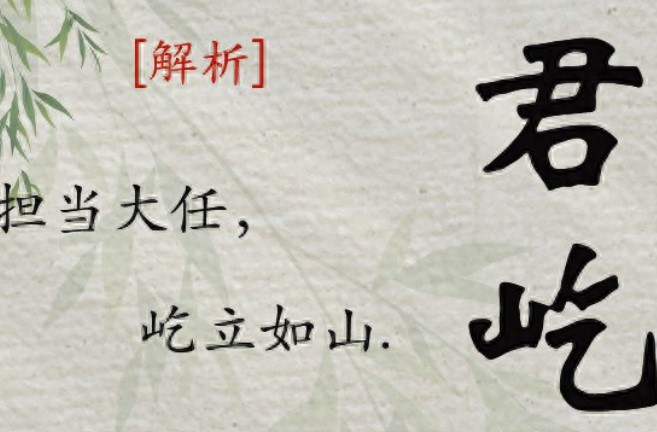 君屹
[解析]
担当大任，
屹立如山.